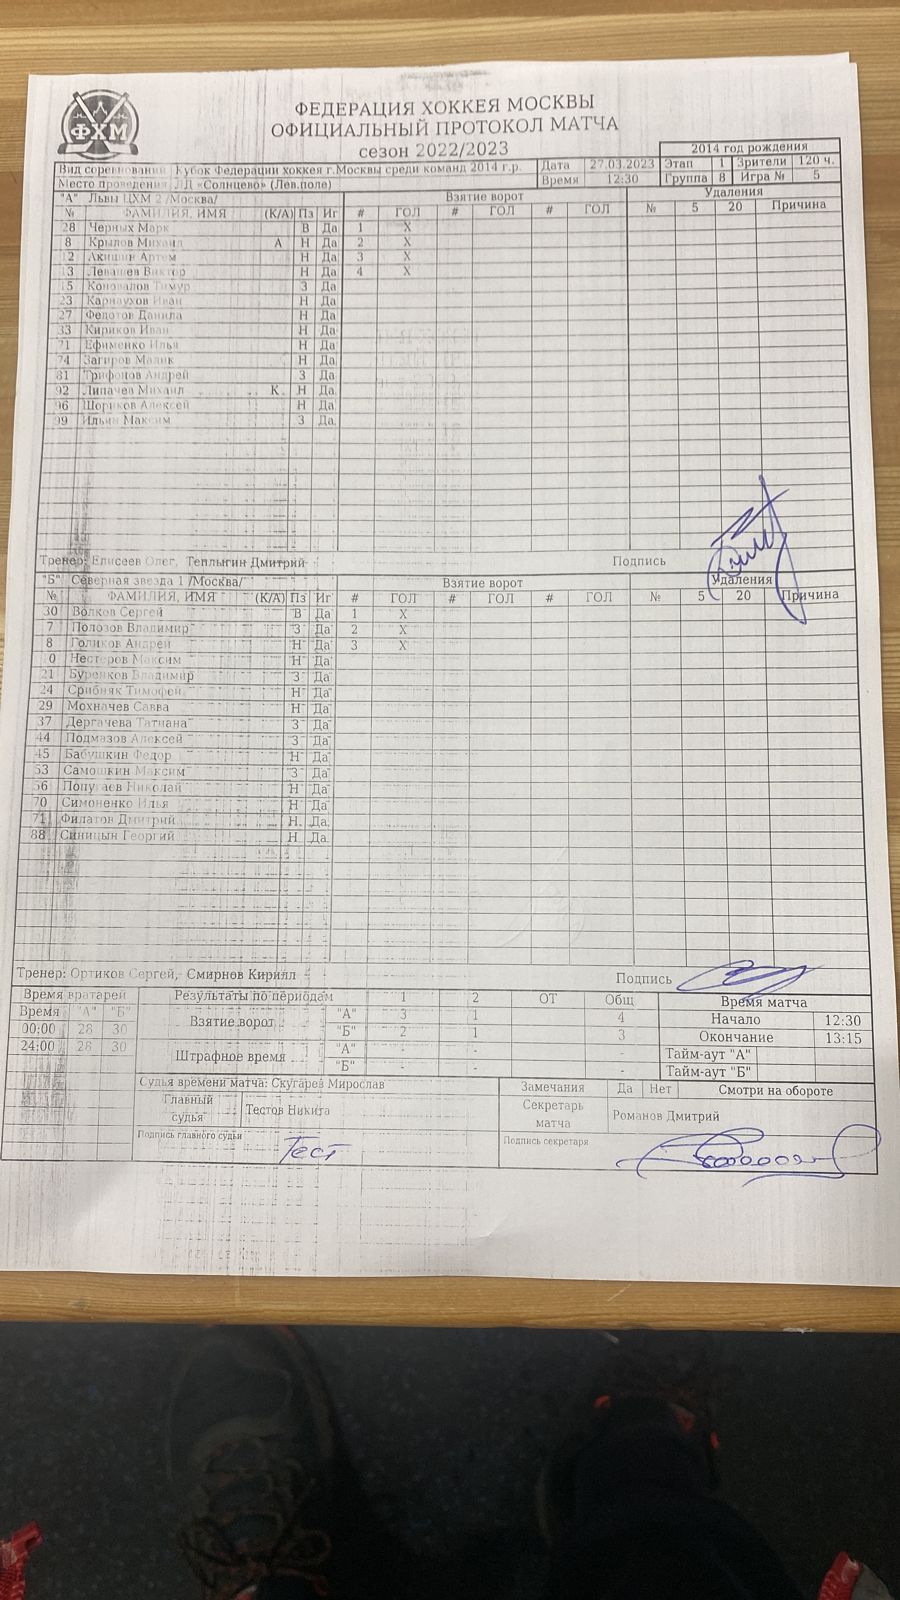 ФХМ
ФЕДЕРАЦИЯ ХОККЕЯ МОСКВЫ
ОФИЦИАЛЬНЫЙ ПРОТОКОЛ МАТЧА
сезон 2022/2023
2014 год рождения
Вид соревнований Кубок Федерации хоккея г.Москвы среди команд 2014 г.р. Дата 27.03.2023 Этап 1 Зрители 120 ч.
Место проведения ЛД «Солнцево» (Лев.поле) Время 12:30 Группа 8 Игра № 5
"А" Львы ЦХМ 2 /Москва/ Взятие ворот Удаления
№ ФАМИЛИЯ, ИМЯ (К/А) Пз Иг # ГОЛ # ГОЛ # ГОЛ № 5 20 Причина
28 Черных Марк В Да 1 X
8 Крылов Михаил А Н Да 2 X
12 Акишин Артем Н Да 3 X
13 Левашев Виктор Н Да 4 X
15 Коновалов Тимур З Да
23 Карнаухов Иван Н Да
27 Федотов Данила Н Да
33 Кириков Иван Н Да
71 Ефименко Илья Н Да
74 Загиров Малик Н Да
81 Трифонов Андрей З Да
92 Липачев Михаил К Н Да
96 Шориков Алексей Н Да
99 Ильин Максим З Да
Тренер: Елисеев Олег, Теплыгин Дмитрий Подпись
"Б" Северная звезда 1 /Москва/ Взятие ворот Удаления
№ ФАМИЛИЯ, ИМЯ (К/А) Пз Иг # ГОЛ # ГОЛ # ГОЛ № 5 20 Причина
30 Волков Сергей В Да 1 X
7 Полозов Владимир З Да 2 X
8 Голиков Андрей Н Да 3 X
Нестеров Максим Н Да
21 Буренков Владимир З Да
24 Срибняк Тимофей Н Да
29 Мохначев Савва Н Да
37 Дергачева Татиана З Да
44 Подмазов Алексей З Да
45 Бабушкин Федор Н Да
53 Самошкин Максим З Да
56 Попугаев Николай Н Да
70 Симоненко Илья Н Да
71 Филатов Дмитрий Н Да
88 Синицын Георгий Н Да
Тренер: Ортиков Сергей, Смирнов Кирилл Подпись
Время вратарей Результаты по периодам 1 2 ОТ Общ Время матча
Время "А" "Б" Взятие ворот "А" 3 1 4 Начало 12:30
00:00 28 30 "Б" 2 1 3 Окончание 13:15
24:00 28 30 Штрафное время "А" - - - Тайм-аут "А"
"Б" - - - Тайм-аут "Б"
Судья времени матча: Скугарев Мирослав Замечания Да Нет Смотри на обороте
Главный судья Тестов Никита Секретарь матча Романов Дмитрий
Подпись главного судьи Тест Подпись секретаря